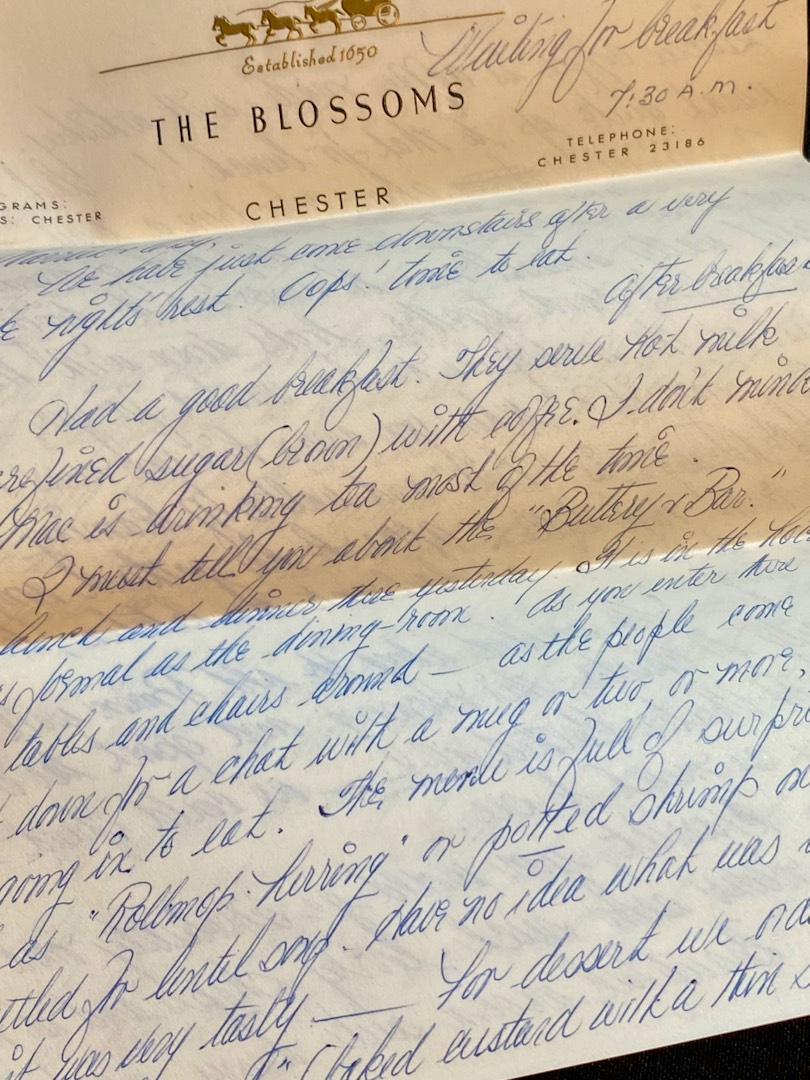 Established 1650
Waiting for breakfast
THE BLOSSOMS
7:30 A.M.
TELEPHONE:
CHESTER 23186
GRAMS:
S: CHESTER
CHESTER
We have just come downstairs after a very
nights' rest. Oops! time to eat.
After breakfast
Had a good breakfast. They serve hot milk
refined sugar (brown) with coffee. I don't mind
Mac is drinking tea most of the time.
I must tell you about the "Buttery & Bar."
lunch and dinner there yesterday It is in the
formal as the dining-room. As you enter there
tables and chairs around — as the people come
down for a chat with a mug or two, or more,
in to eat. The menu is full of surpri
as "Rollmop herring" or potted shrimp
ettled for lentil soup. Have no idea what was
it was very tasty — For dessert we ord
" (baked custard with a thin